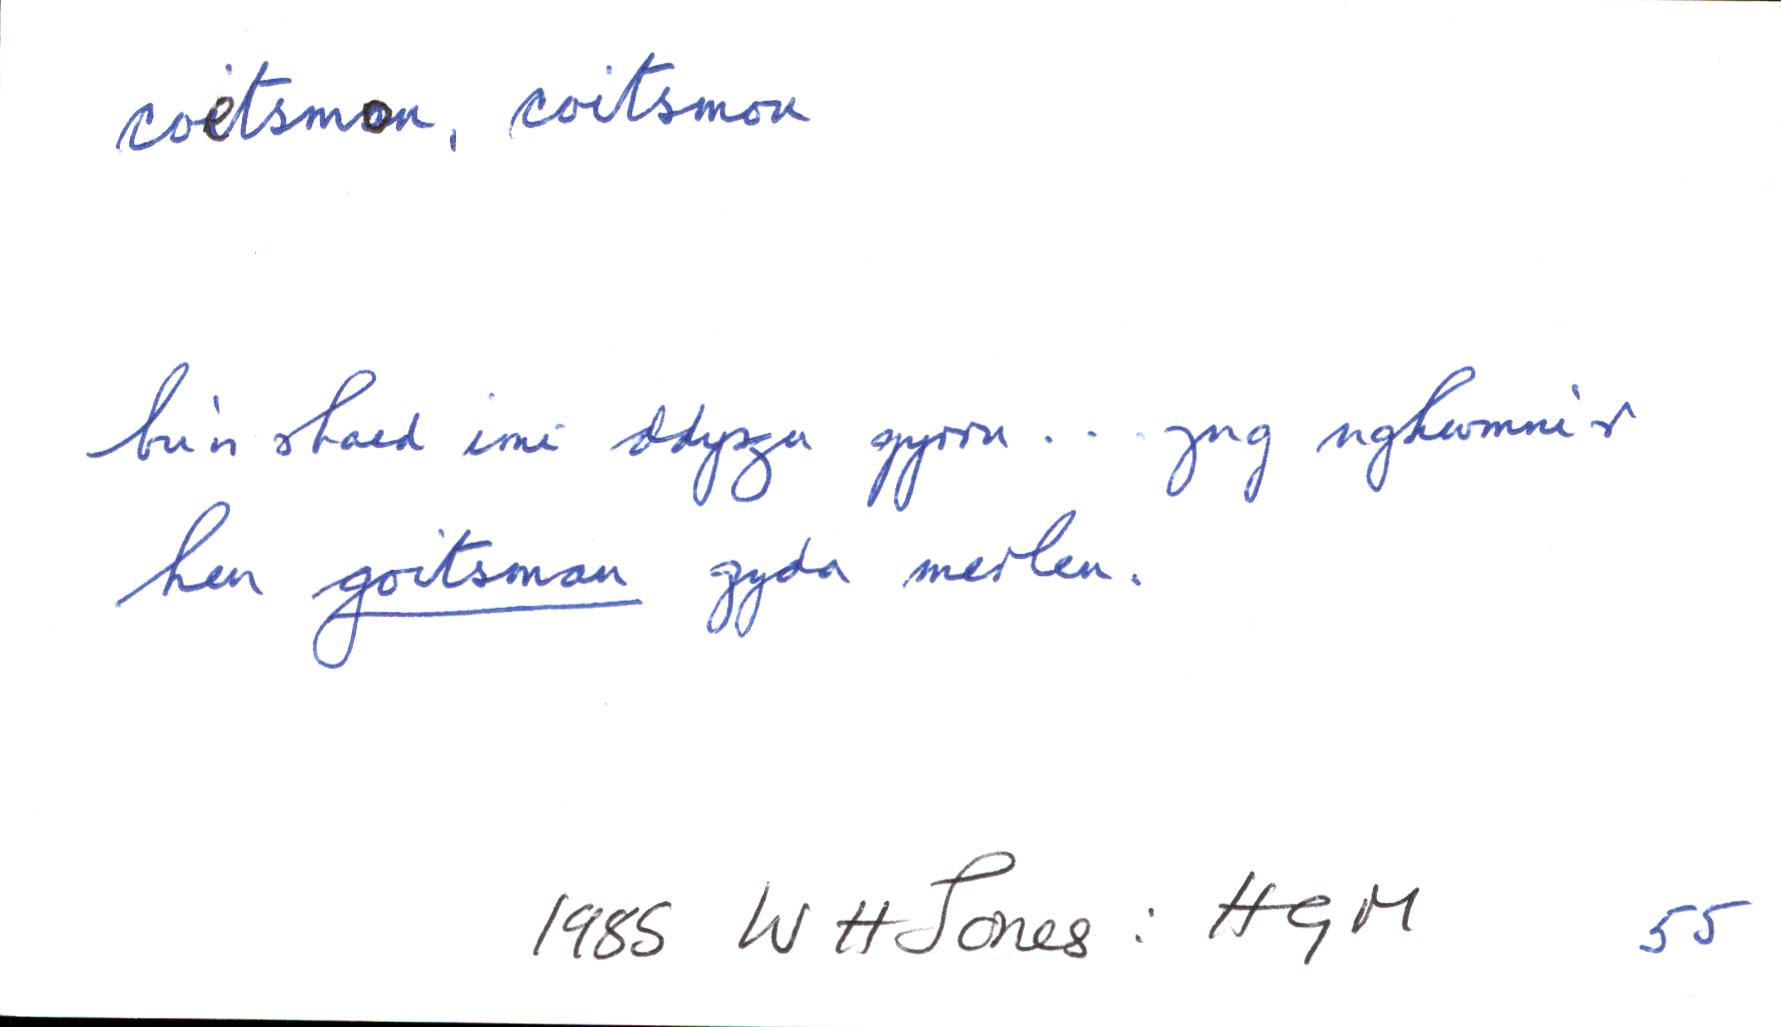 coetsmon, coitsmon
bu'n rhaid imi ddysgu gyrru... yng nghwmni'r
hen goitsman gyda merlen.
1985 W H Jones: HGM 55